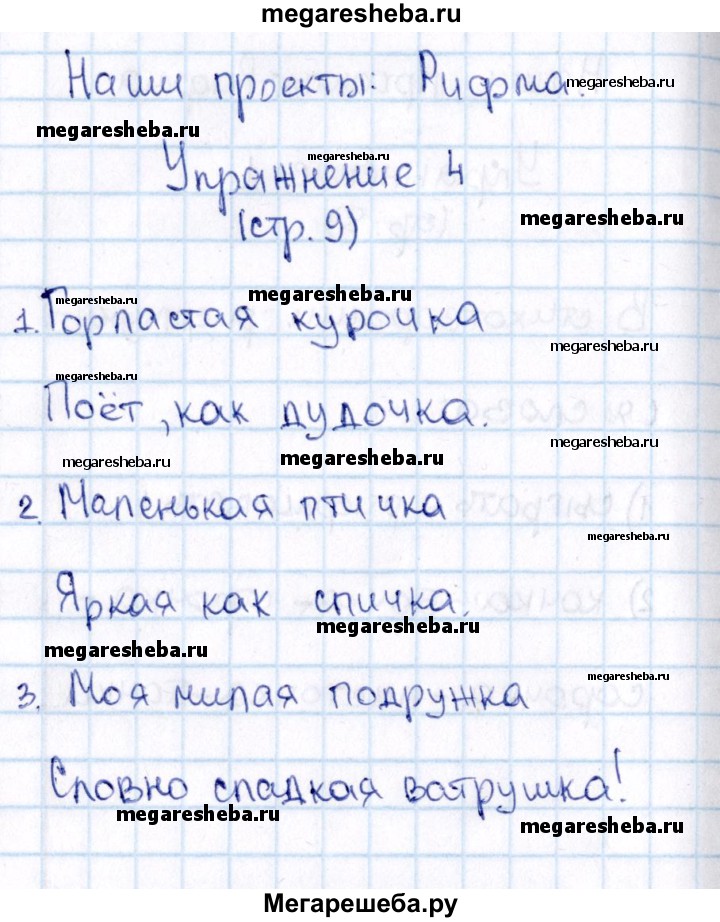 megaresheba.ru
Наши проекты: Рифма.
megaresheba.ru
megaresheba.ru
megaresheba.ru
Упражнение 4
megaresheba.ru
(стр. 9)
megaresheba.ru
megaresheba.ru
1. Горластая курочка
megaresheba.ru
megaresheba.ru
Поёт, как дудочка.
megaresheba.ru
megaresheba.ru
megaresheba.ru
2. Маленькая птичка
megaresheba.ru
Яркая как спичка.
megaresheba.ru
megaresheba.ru
megaresheba.ru
3. Моя милая подружка
Словно сладкая ватрушка!
megaresheba.ru
megaresheba.ru
Мегарешеба.ру